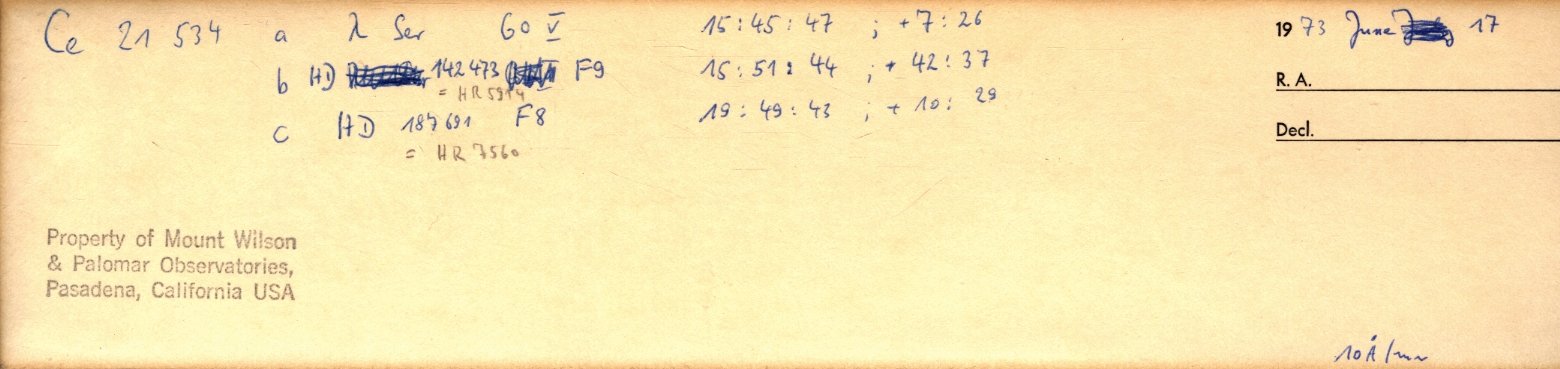 Ce 21 534 a λ Ser G0 V 15:45:47 ; +7:26 1973 June 17
b HD 142473 F9 15:51:44 ; + 42:37 R. A.
= HR 5914
c HD 187691 F8 19:49:43 ; + 10:29 Decl.
= HR 7560
Property of Mount Wilson
& Palomar Observatories,
Pasadena, California USA
10 Å/mm